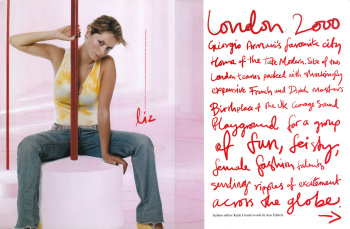 liz
London 2000
Giorgio Armani's favourite city
Home of the Tate Modern. Site of two
London teams packed with shockingly
expensive French and Dutch masters
Birthplace of the UK Garage Sound
Playground for a group
of fun, feisty,
female fashion talents
sending ripples of excitement
across the globe.
Fashion editor Katie Grand words by